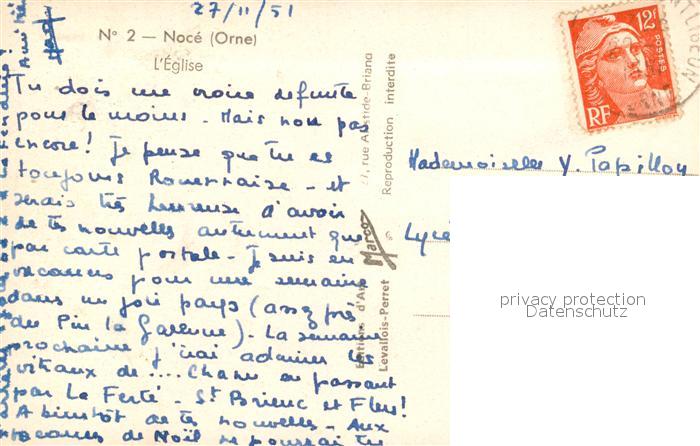 27/11/51
N° 2 — Nocé (Orne)
L'Église
Tu dois me croire defunte
pour le moins. Mais non pas
encore! Je pense que tu es
toujours Rouennaise - et
serais très heureuse d'avoir
de tes nouvelles autrement que
par carte postale. Je suis en
vacances pour une semaine
dans un joli pays (assez près
du Pin la Garenne). La semaine
prochaine j'irai admirer les
vitraux de .... Chartres en passant
par La Ferté - St Brieuc et Flers!
A bientôt de tes nouvelles - Aux
vacances de Noël ne pourrais tu
Editions d'Art
Marco
rue Aristide-Briand
Levallois-Perret
Reproduction interdite
12F
POSTES
RF
Mademoiselle Y. Papillon
Lycé
privacy protection
Datenschutz